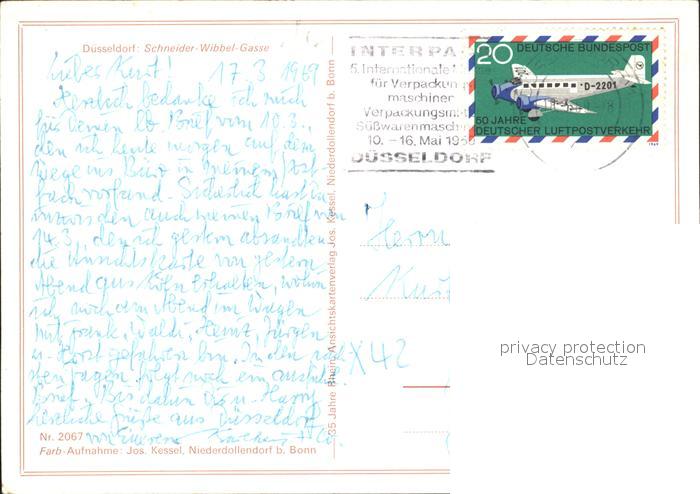 Düsseldorf: Schneider-Wibbel-Gasse
Lieber Kurt! 17.3.1969
Herzlich bedanke ich mich
für Deinen lb Brief vom 10.3.,
den ich heute morgen auf dem
Wege ins Büro in meinem Post-
fach vorfand. Sicherlich hast Du
inzwischen auch meinen Brief vom
14.3., den ich gestern absandte,
die Ansichtskarte von gestern
Abend aus Köln erhalten, wohin
ich noch am Abend im Wagen
mit Frank, Waldi, Heinz, Jürgen
u. Horst gefahren bin. In den näch-
sten Tagen folgt noch ein ausführl.
Brief. Bis dahin Dir u. Harry
herzliche Grüße aus Düsseldorf
von
Nr. 2067
Farb-Aufnahme: Jos. Kessel, Niederdollendorf b. Bonn
35 Jahre Rhein. Ansichtskartenverlag Jos. Kessel, Niederdollendorf b. Bonn
INTERPA
5. Internationale
für Verpackun
maschinen
Verpackungsmi
Süßwarenmasch
10. – 16. Mai 196
DÜSSELDORF
20 DEUTSCHE BUNDESPOST
D-2201
50 JAHRE
DEUTSCHER LUFTPOSTVERKEHR
1969
Herrn
Kurt
X42
privacy protection
Datenschutz